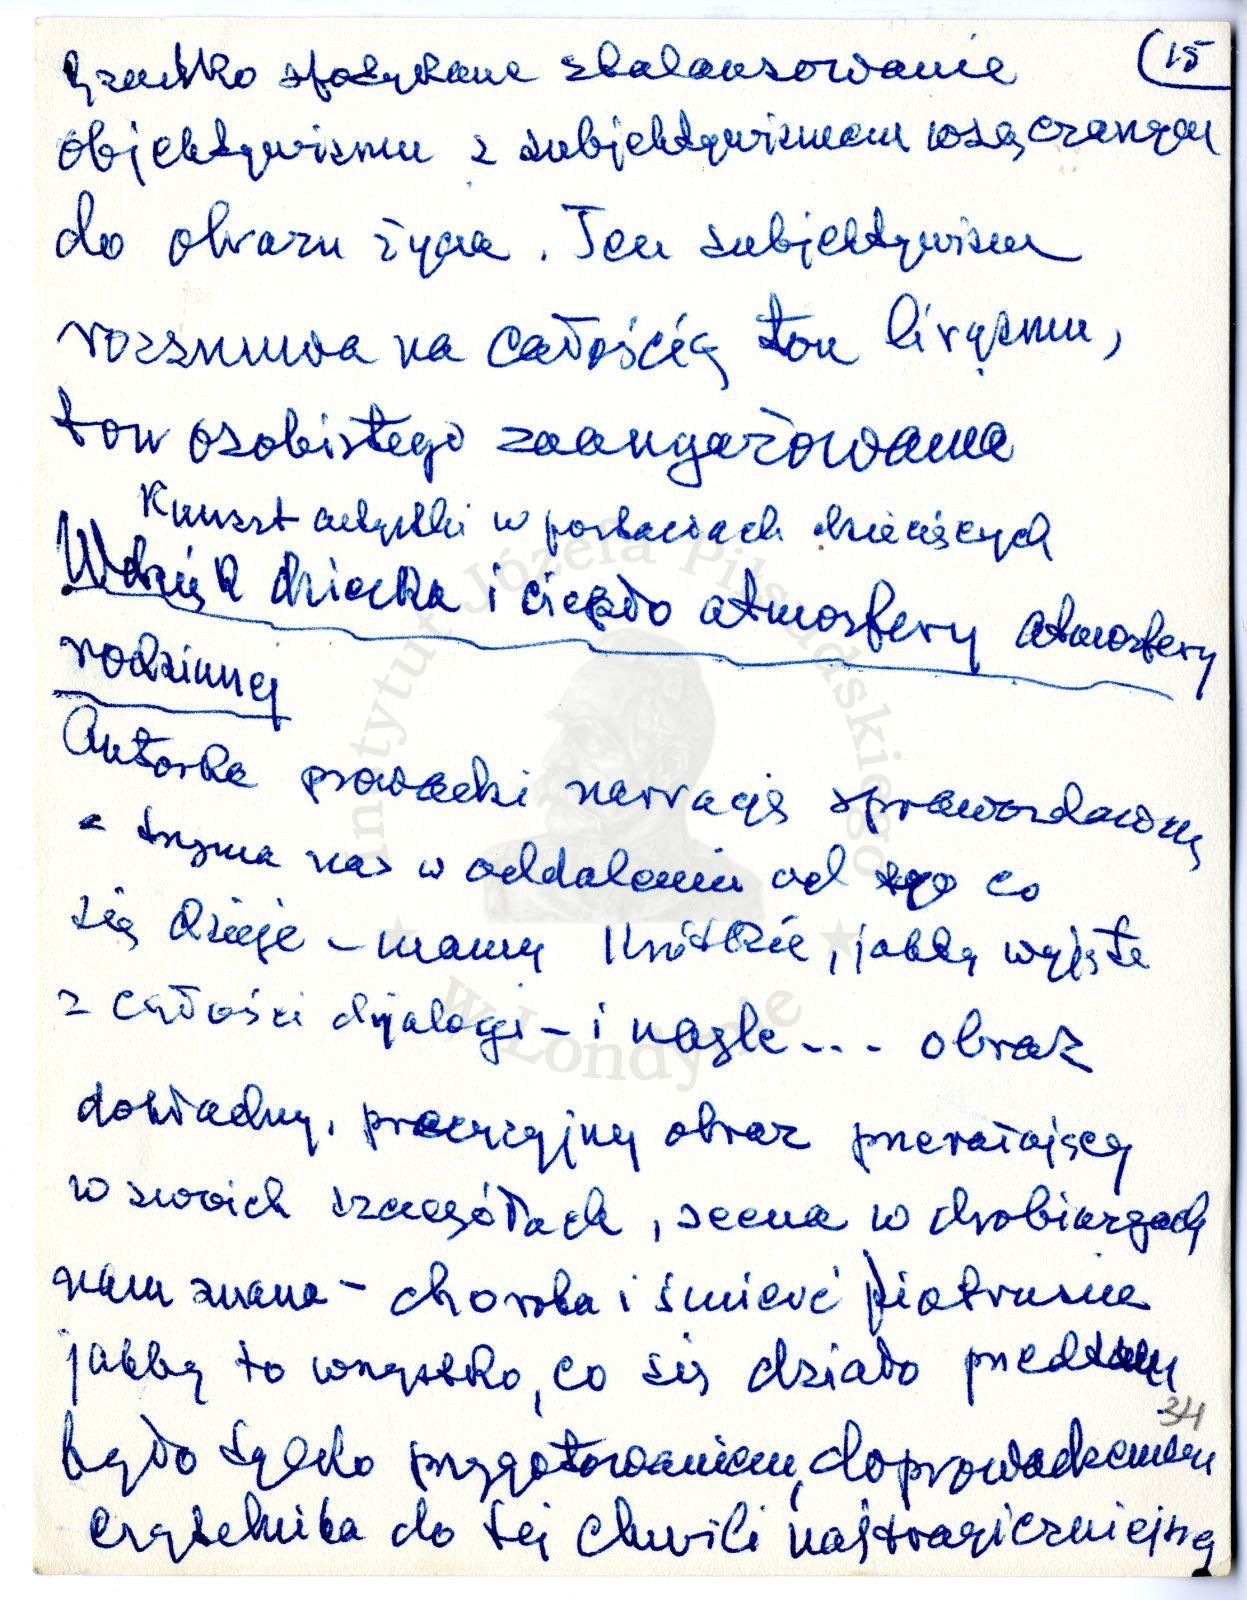 (15
rzadko spotykane zbalansowanie
objektywizmu z subjektywizmem wsączanym
do obrazu życia. Ten subjektywizm
rozsnuwa na całością ton liryzmu,
ton osobistego zaangażowania
Kunszt artystki w postaciach dziecięcych
Wdzięk dziecka i ciepło atmosfery atmosfery
rodzinnej
Autorka prowadzi narrację sprawozdawczą
- trzyma nas w oddaleniu od tego co
się dzieje - mamy krótkie, jakby wyjęte
z całości dyjalogi - i nagle... obraz
dokładny, precyzyjny obraz przerażający
w swoich szczegółach, scena w drobiazgach
nam znana - choroba i śmierć Piotrusia
jakby to wszystko, co się działo przedtem
było tylko przygotowaniem, doprowadzeniem
czytelnika do tej chwili najtragiczniejszej
34
Instytut Józefa Piłsudskiego
w Londynie